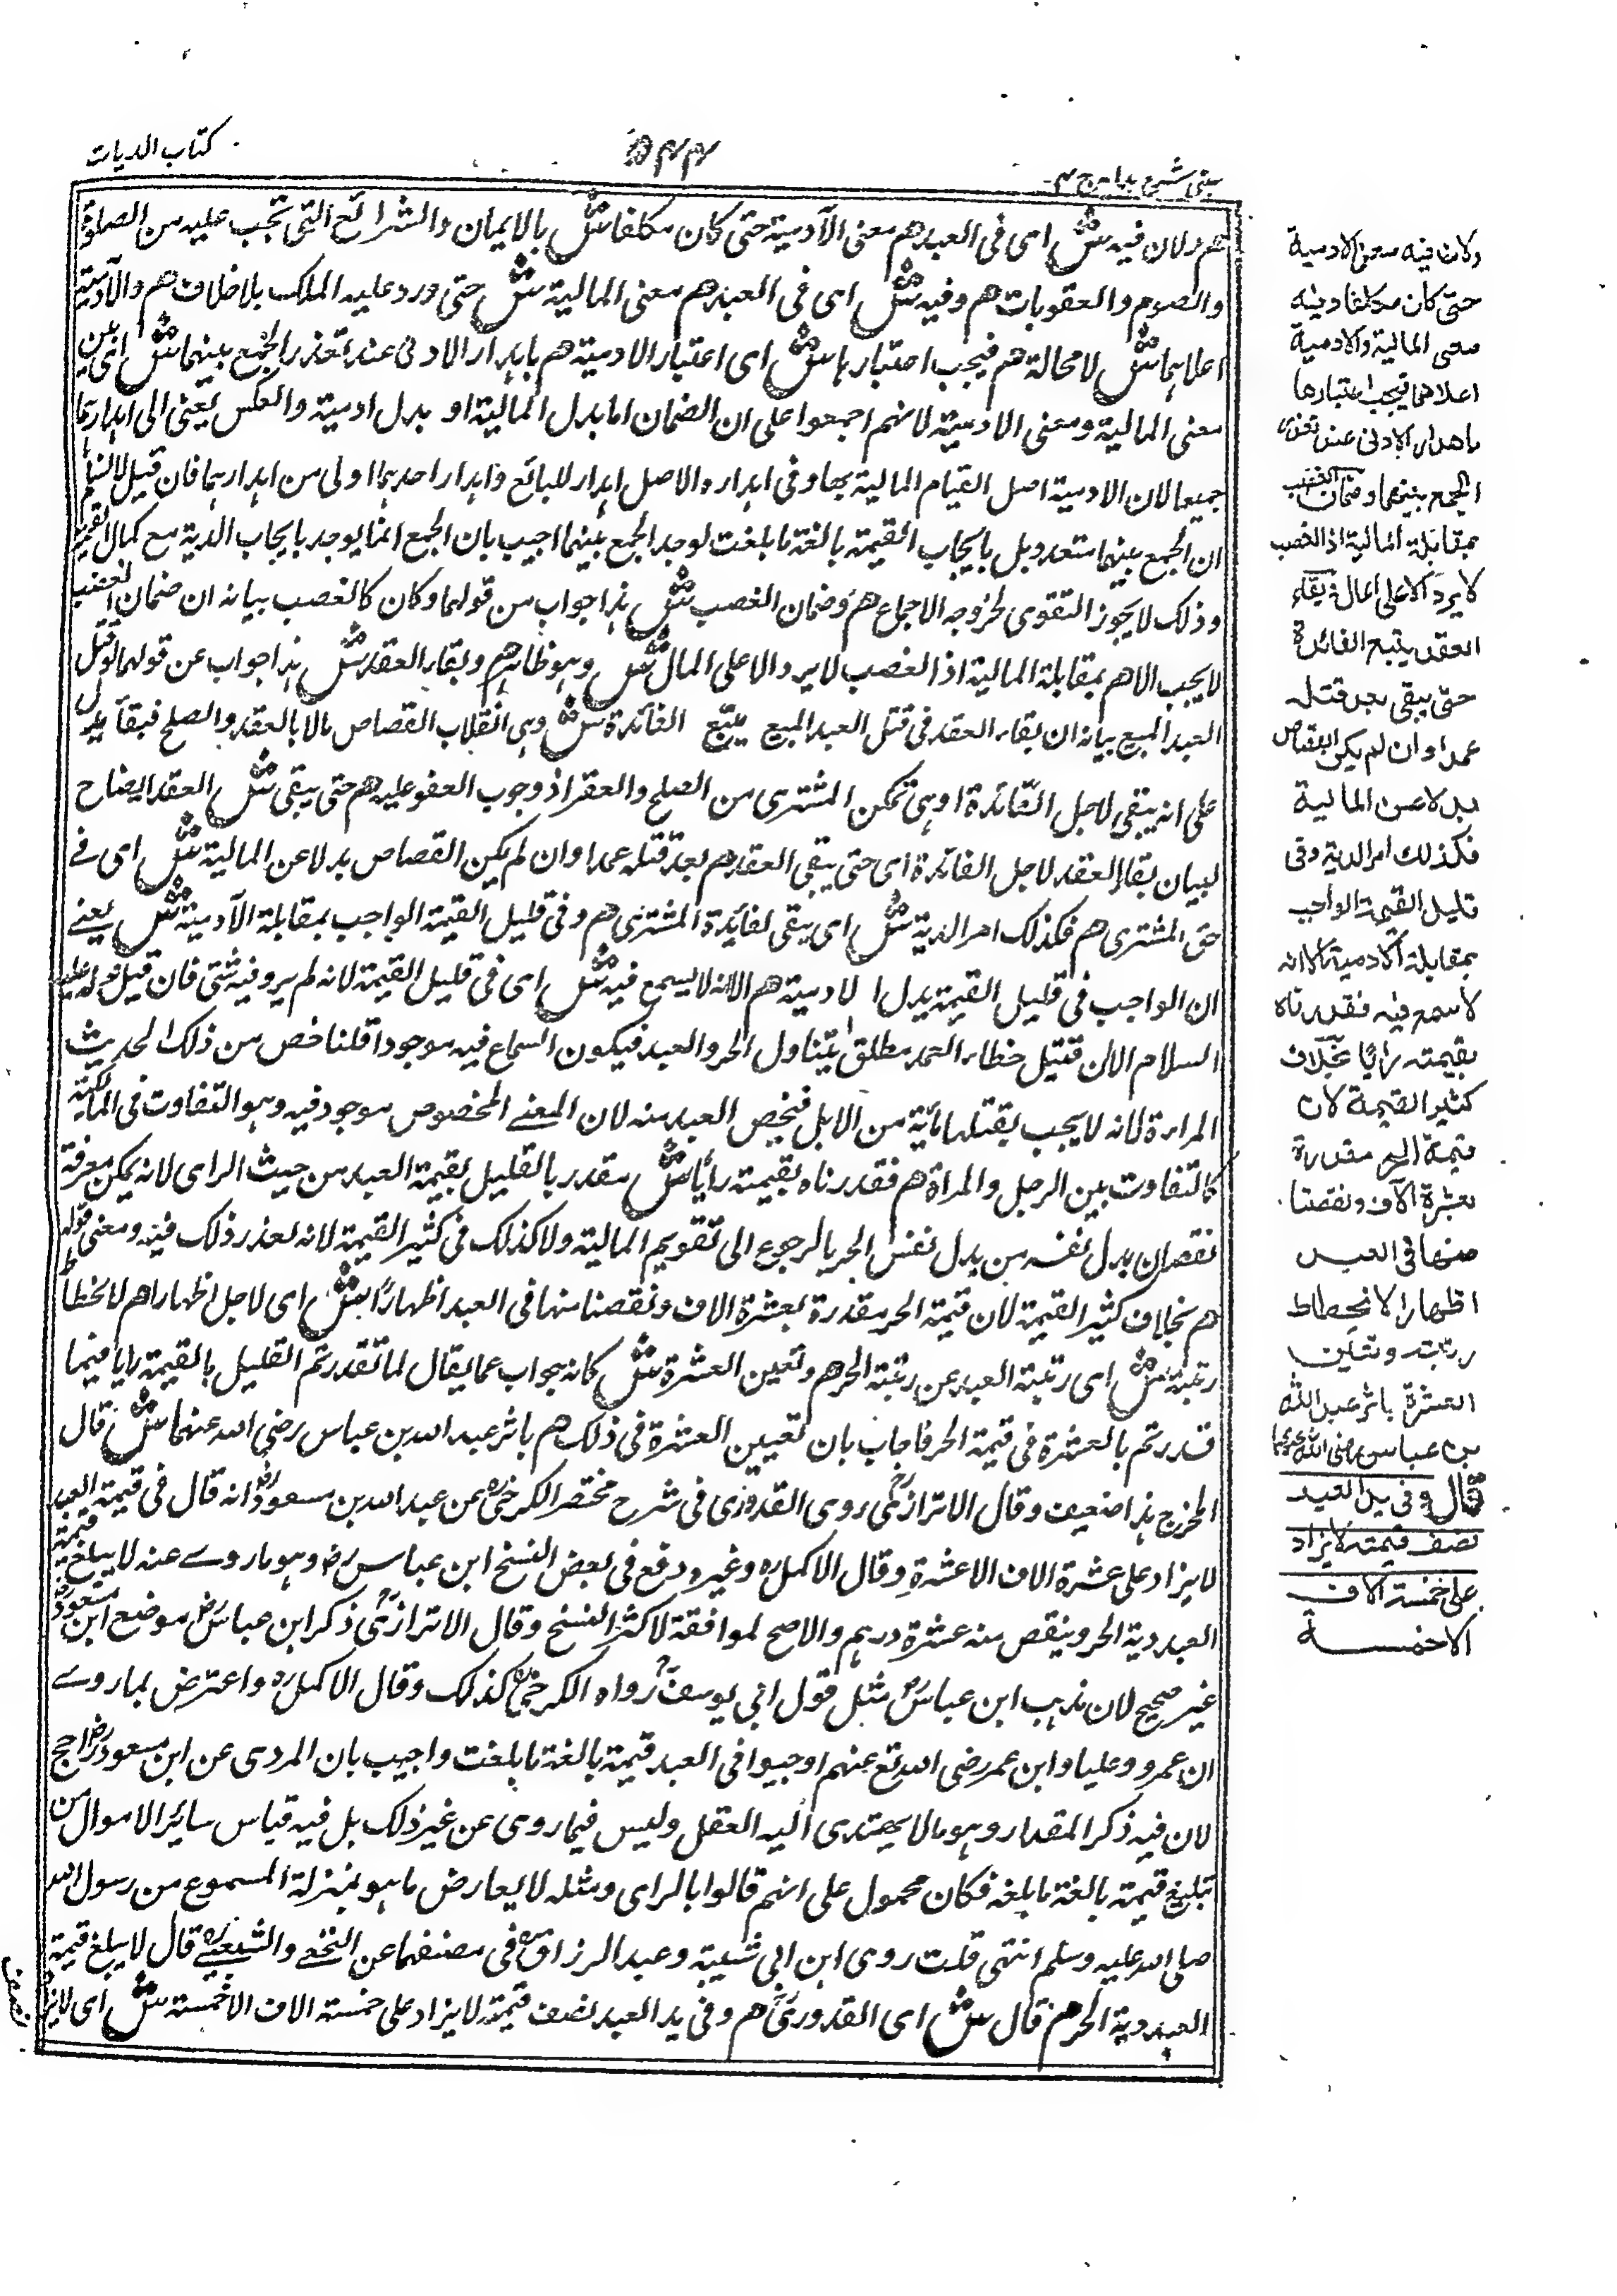 كتاب الديات
عينى شرح هداية ج ٤
هم ولان فيه ش اى فى العبد هم معنى الآدمية حتى كان مكلفا ش بالايمان والشرائع التى تجب عليه من الصلوة
والصوم والعقوبات هم وفيه ش اى فى العبد هم معنى المالية ش حتى ورد عليه الملك بلا خلاف هم والآدمية
اعلاهما ش لا محالة هم فيجب اعتبارها ش اى اعتبار الادمية هم باهدار الادنى عند تعذر الجمع بينهما ش اى بين
معنى المالية ومعنى الادمية لانهم اجمعوا على ان الضمان اما بدل المالية او بدل ادمية والعكس يعنى الى اهدارهما
جميعا لان الادمية اصل القيام المالية بها وفى اهداره الاصل اهدار للبائع واهدار احدهما اولى من اهدارهما فان قيل لا نسلم
ان الجمع بينهما متعذر بل بايجاب القيمة بالغة ما بلغت لوجد الجمع بينهما اجيب بان الجمع انما يوجد بايجاب الدية مع كمال القيمة
وذلك لا يجوز التقوى لخروجه الاجماع هم وضمان الغصب ش هذا جواب من قولهما وكان كالغصب بيانه ان ضمان الغصب
لا يجب الا هم بمقابلة المالية اذ الغصب لا يرد الا على المال ش وهو ظاهر هم وبقاء العقد ش هذا جواب عن قولهما لو قتل
العبد المبيع بيانه ان بقاء العقد فى قتل العبد المبيع يتبع الفائدة ش وهى انقلاب القصاص مالا بالعقد والصلح فبقاؤه يدل
على انه يبقى لاجل الفائدة او هى تمكن المشترى من الصلح والعقر اذ وجوب العفو عليه هم حتى يبقى ش العقد ايضاح
لبيان بقاء العقد لاجل الفائدة اى حتى يبقى العقد هم بعد قتله عمدا وان لم يكن القصاص بدلا عن المالية ش اى فى
حق المشترى هم فكذلك امر الدية ش اى يبقى لفائدة المشترى هم وفى قليل القيمة الواجب بمقابلة الآدمية ش يعنى
ان الواجب فى قليل القيمة بدل الادمية هم الا انه لا يسمع فيه ش اى فى قليل القيمة لانه لم يرو فيه شئ فان قيل قوله عليه
السلام الا ان قتيل خطاء العمد مطلق يتناول الحر والعبد فيكون السماع فيه موجودا قلنا خص من ذلك الحديث
المراءة لانه لا يجب بقتلها مائة من الابل فيخص العبد منه لان المعنى المخصوص موجود فيه وهو التفاوت فى المالكية
كالتفاوت بين الرجل والمراة هم فقدرناه بقيمته رأيا ش مقدر بالقليل بقيمة العبد من حيث الراى لانه يمكن معرفة
نقصان بدل نفسه من بدل نفس الحر بالرجوع الى تقويم المالية ولا كذلك فى كثير القيمة لانه تعذر ذلك فيه ومعنى قوله
هم بخلاف كثير القيمة لان قيمة الحر مقدرة بعشرة الاف ونقصنا منها فى العبد اظهارا ش اى لاجل اظهارا هم لانحطاط
رتبته ش اى رتبة العبد عن رتبة الحر هم وتعين العشرة ش كانه جواب عما يقال لما تقدرتم القليل بالقيمة رايا فيما
قدرتم بالعشرة فى قيمة الحر فاجاب بان تعيين العشرة فى ذلك هم باثر عبد الله بن عباس رضى الله عنهما ش قال
المخرج هذا ضعيف وقال الاترازى روى القدورى فى شرح مختصر الكرخى عن عبد الله بن مسعود انه قال فى قيمة العبد
لا يزاد على عشرة الاف الا عشرة وقال الاكمل ره وغيره وقع فى بعض النسخ ابن عباس رض وهو ما روى عنه لا يبلغ قيمة
العبد دية الحر وينقص منه عشرة درهم والاصح لموافقة لاكثر النسخ وقال الاترازى ذكر ابن عباس موضع ابن مسعود
غير صحيح لان مذهب ابن عباس مثل قول ابى يوسف رواه الكرخى كذلك وقال الاكمل ره واعترض بما روى
ان عمر و عليا وابن عمر رضى الله تع عنهم اوجبوا فى العبد قيمة بالغة ما بلغت واجيب بان المروى عن ابن مسعود ارجح
لان فيه ذكر المقدار وهو ما لا يهتدى اليه العقل وليس فيما روى عن غير ذلك بل فيه قياس سائر الاموال من
تبليغ قيمته بالغة ما بلغه فكان محمول على انهم قالوا بالراى ومثله لا يعارض ما هو بمنزلة المسموع من رسول الله
صلى الله عليه وسلم انتهى قلت روى ابن ابى شيبة وعبد الرزاق فى مصنفهما عن النخعى والشعبى قال لا يبلغ قيمة
العبد دية الحر هم قال ش اى القدورى هم وفى يد العبد نصف قيمته لا يزاد على خمسة الاف الا خمسة ش اى لا يزاد
ولان فيه معنى الادمية
حتى كان مكلفا وفيه
معنى المالية والادمية
اعلاهما فيجب اعتبارها
باهدار الادنى عند تعذر
الجمع بينهما وضمان الغصب
بمقابلة المالية اذ الغصب
لا يرد الا على المال وبقاء
العقد يتبع الفائدة
حتى يبقى بعد قتله
عمدا وان لم يكن القصاص
بدلا عن المالية
فكذلك امر الدية وفى
قليل القيمة الواجب
بمقابلة الادمية الا انه
لا سمع فيه فقدرناه
بقيمته رايا بخلاف
كثير القيمة لان
قيمة الحر مقدرة
بعشرة الاف ونقصنا
منها فى العبد
اظهارا لانحطاط
رتبته وتعين
العشرة باثر عبد الله
بن عباس رضى الله عنهما
قال وفى يد العبد
نصف قيمته لا يزاد
على خمسة الاف
الا خمسة